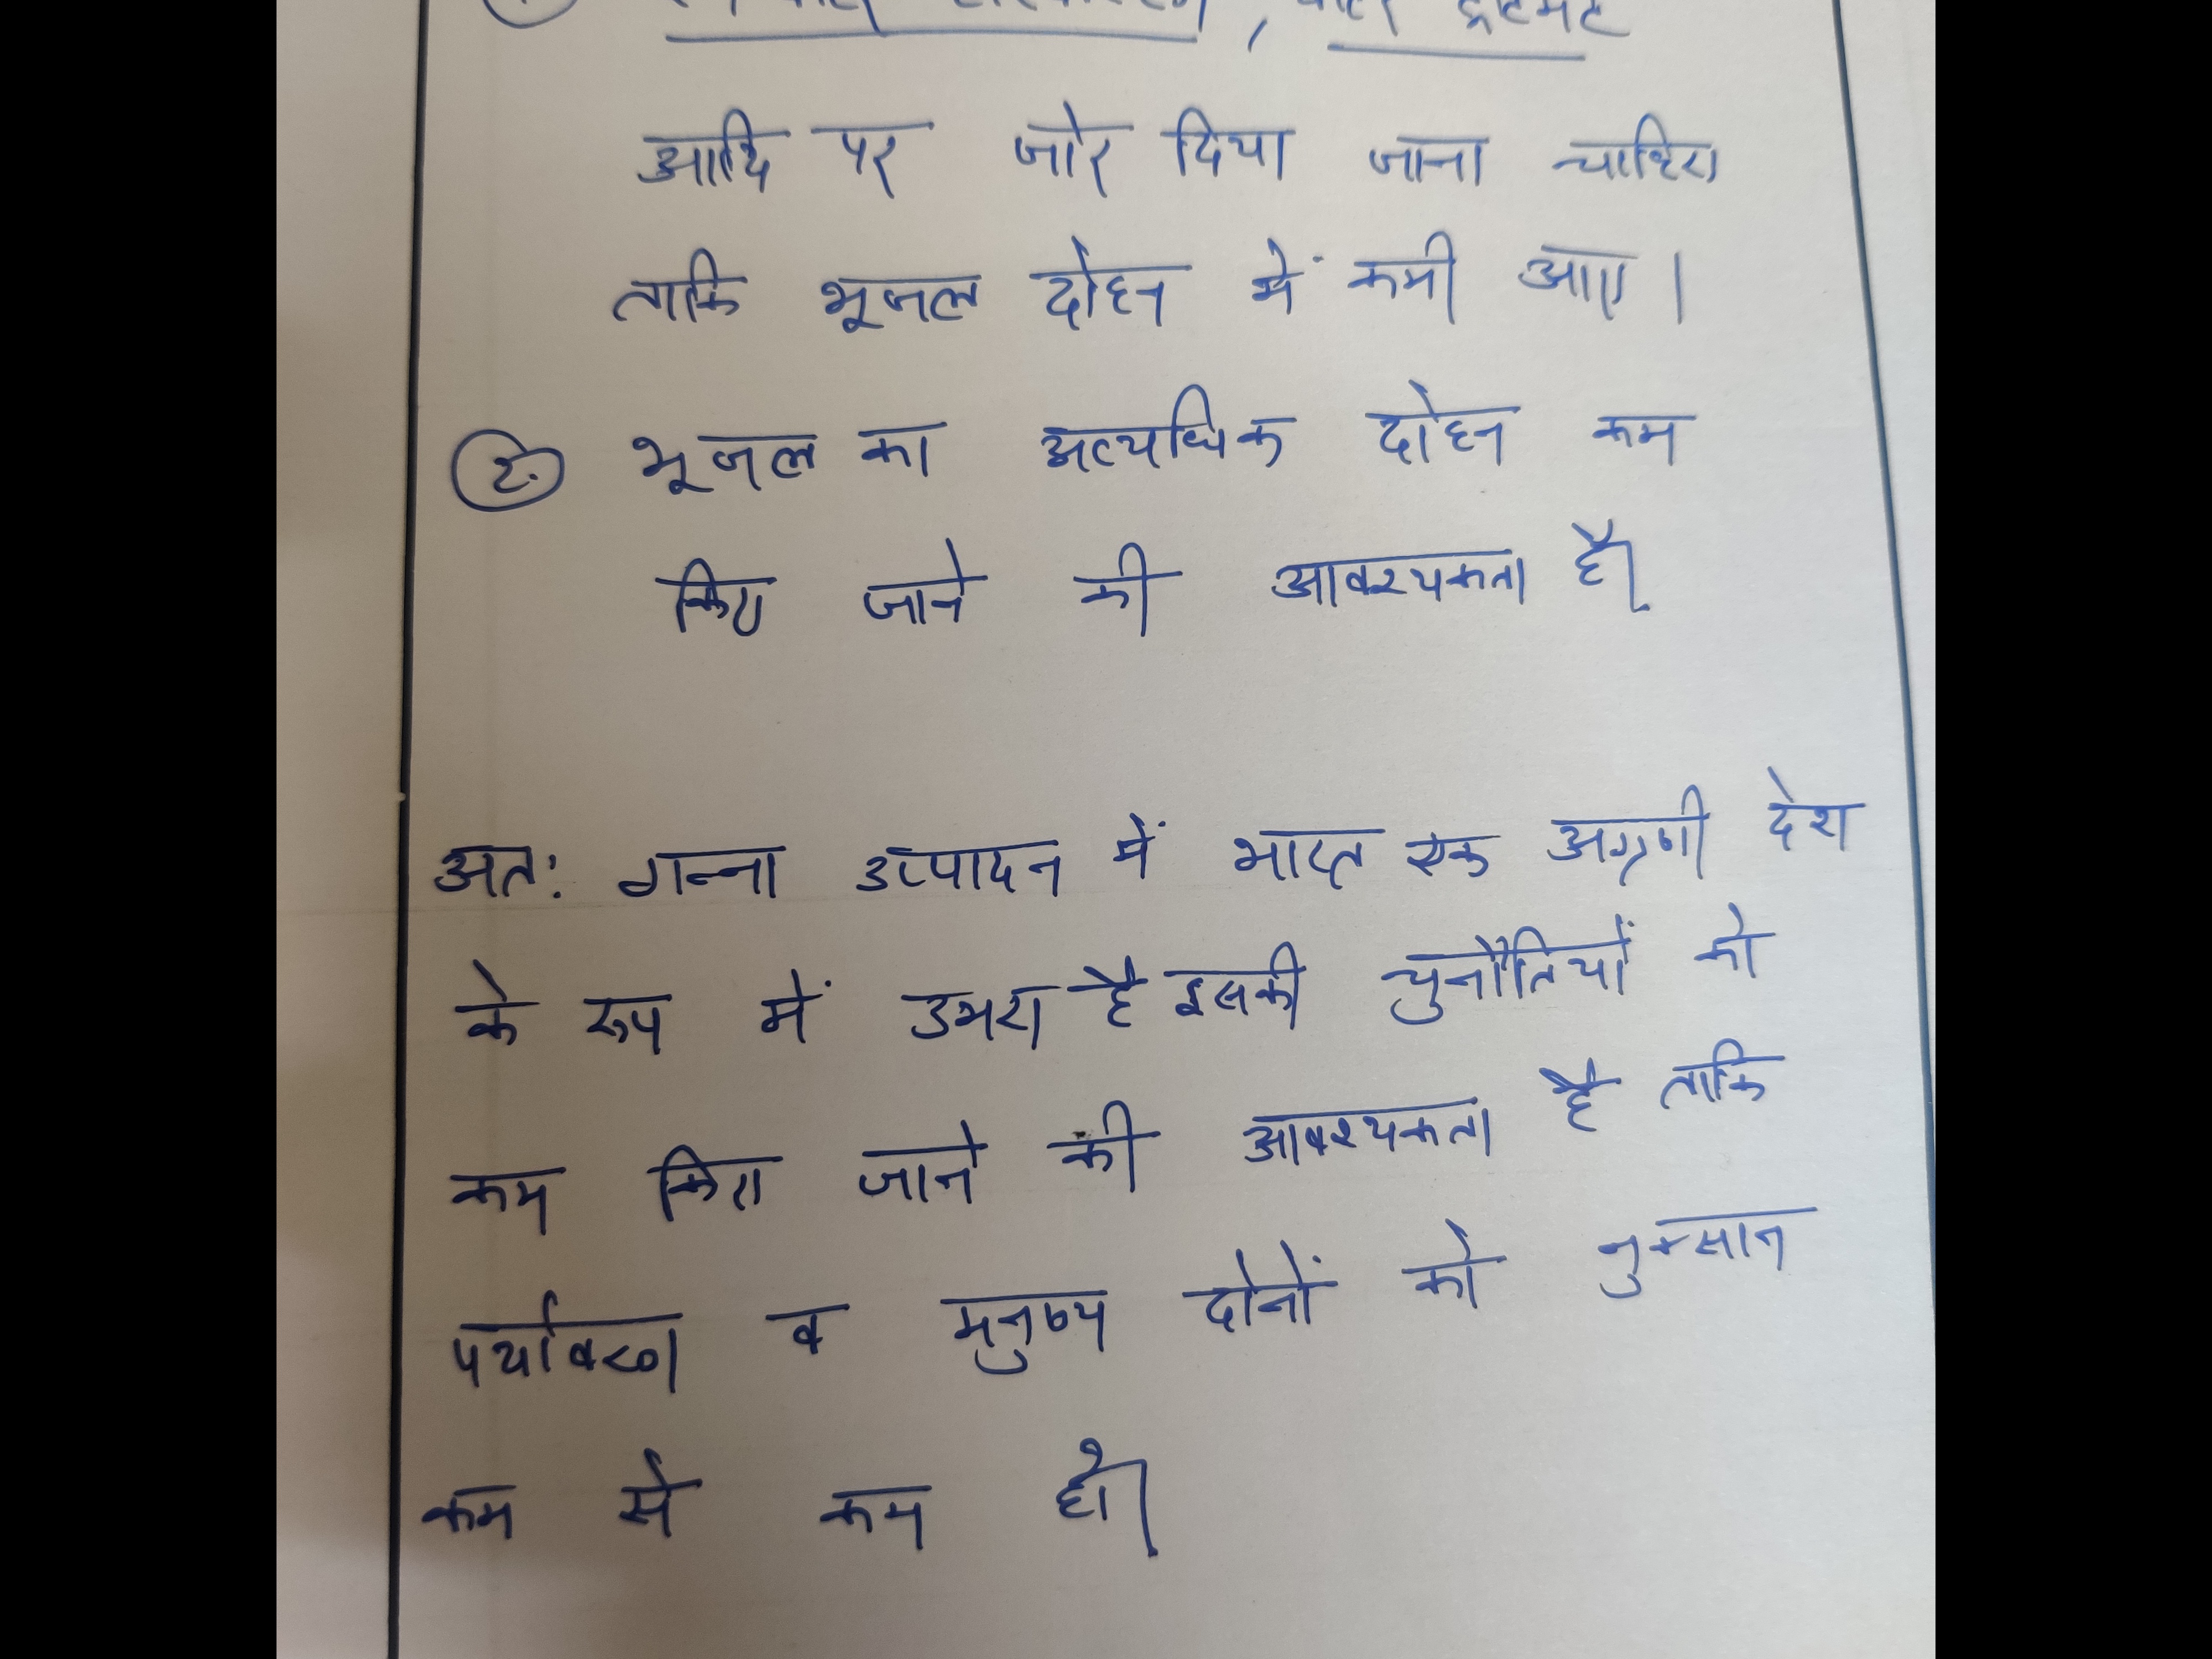 आदि पर जोर दिया जाना चाहिए
ताकि भूजल दोहन में कमी आए।
2. भूजल का अत्यधिक दोहन कम
किए जाने की आवश्यकता है।
अतः गन्ना उत्पादन में भारत एक अग्रणी देश
के रूप में उभरा है इसकी चुनौतियों को
कम किए जाने की आवश्यकता है ताकि
पर्यावरण व मनुष्य दोनों को नुक्सान
कम से कम हो।